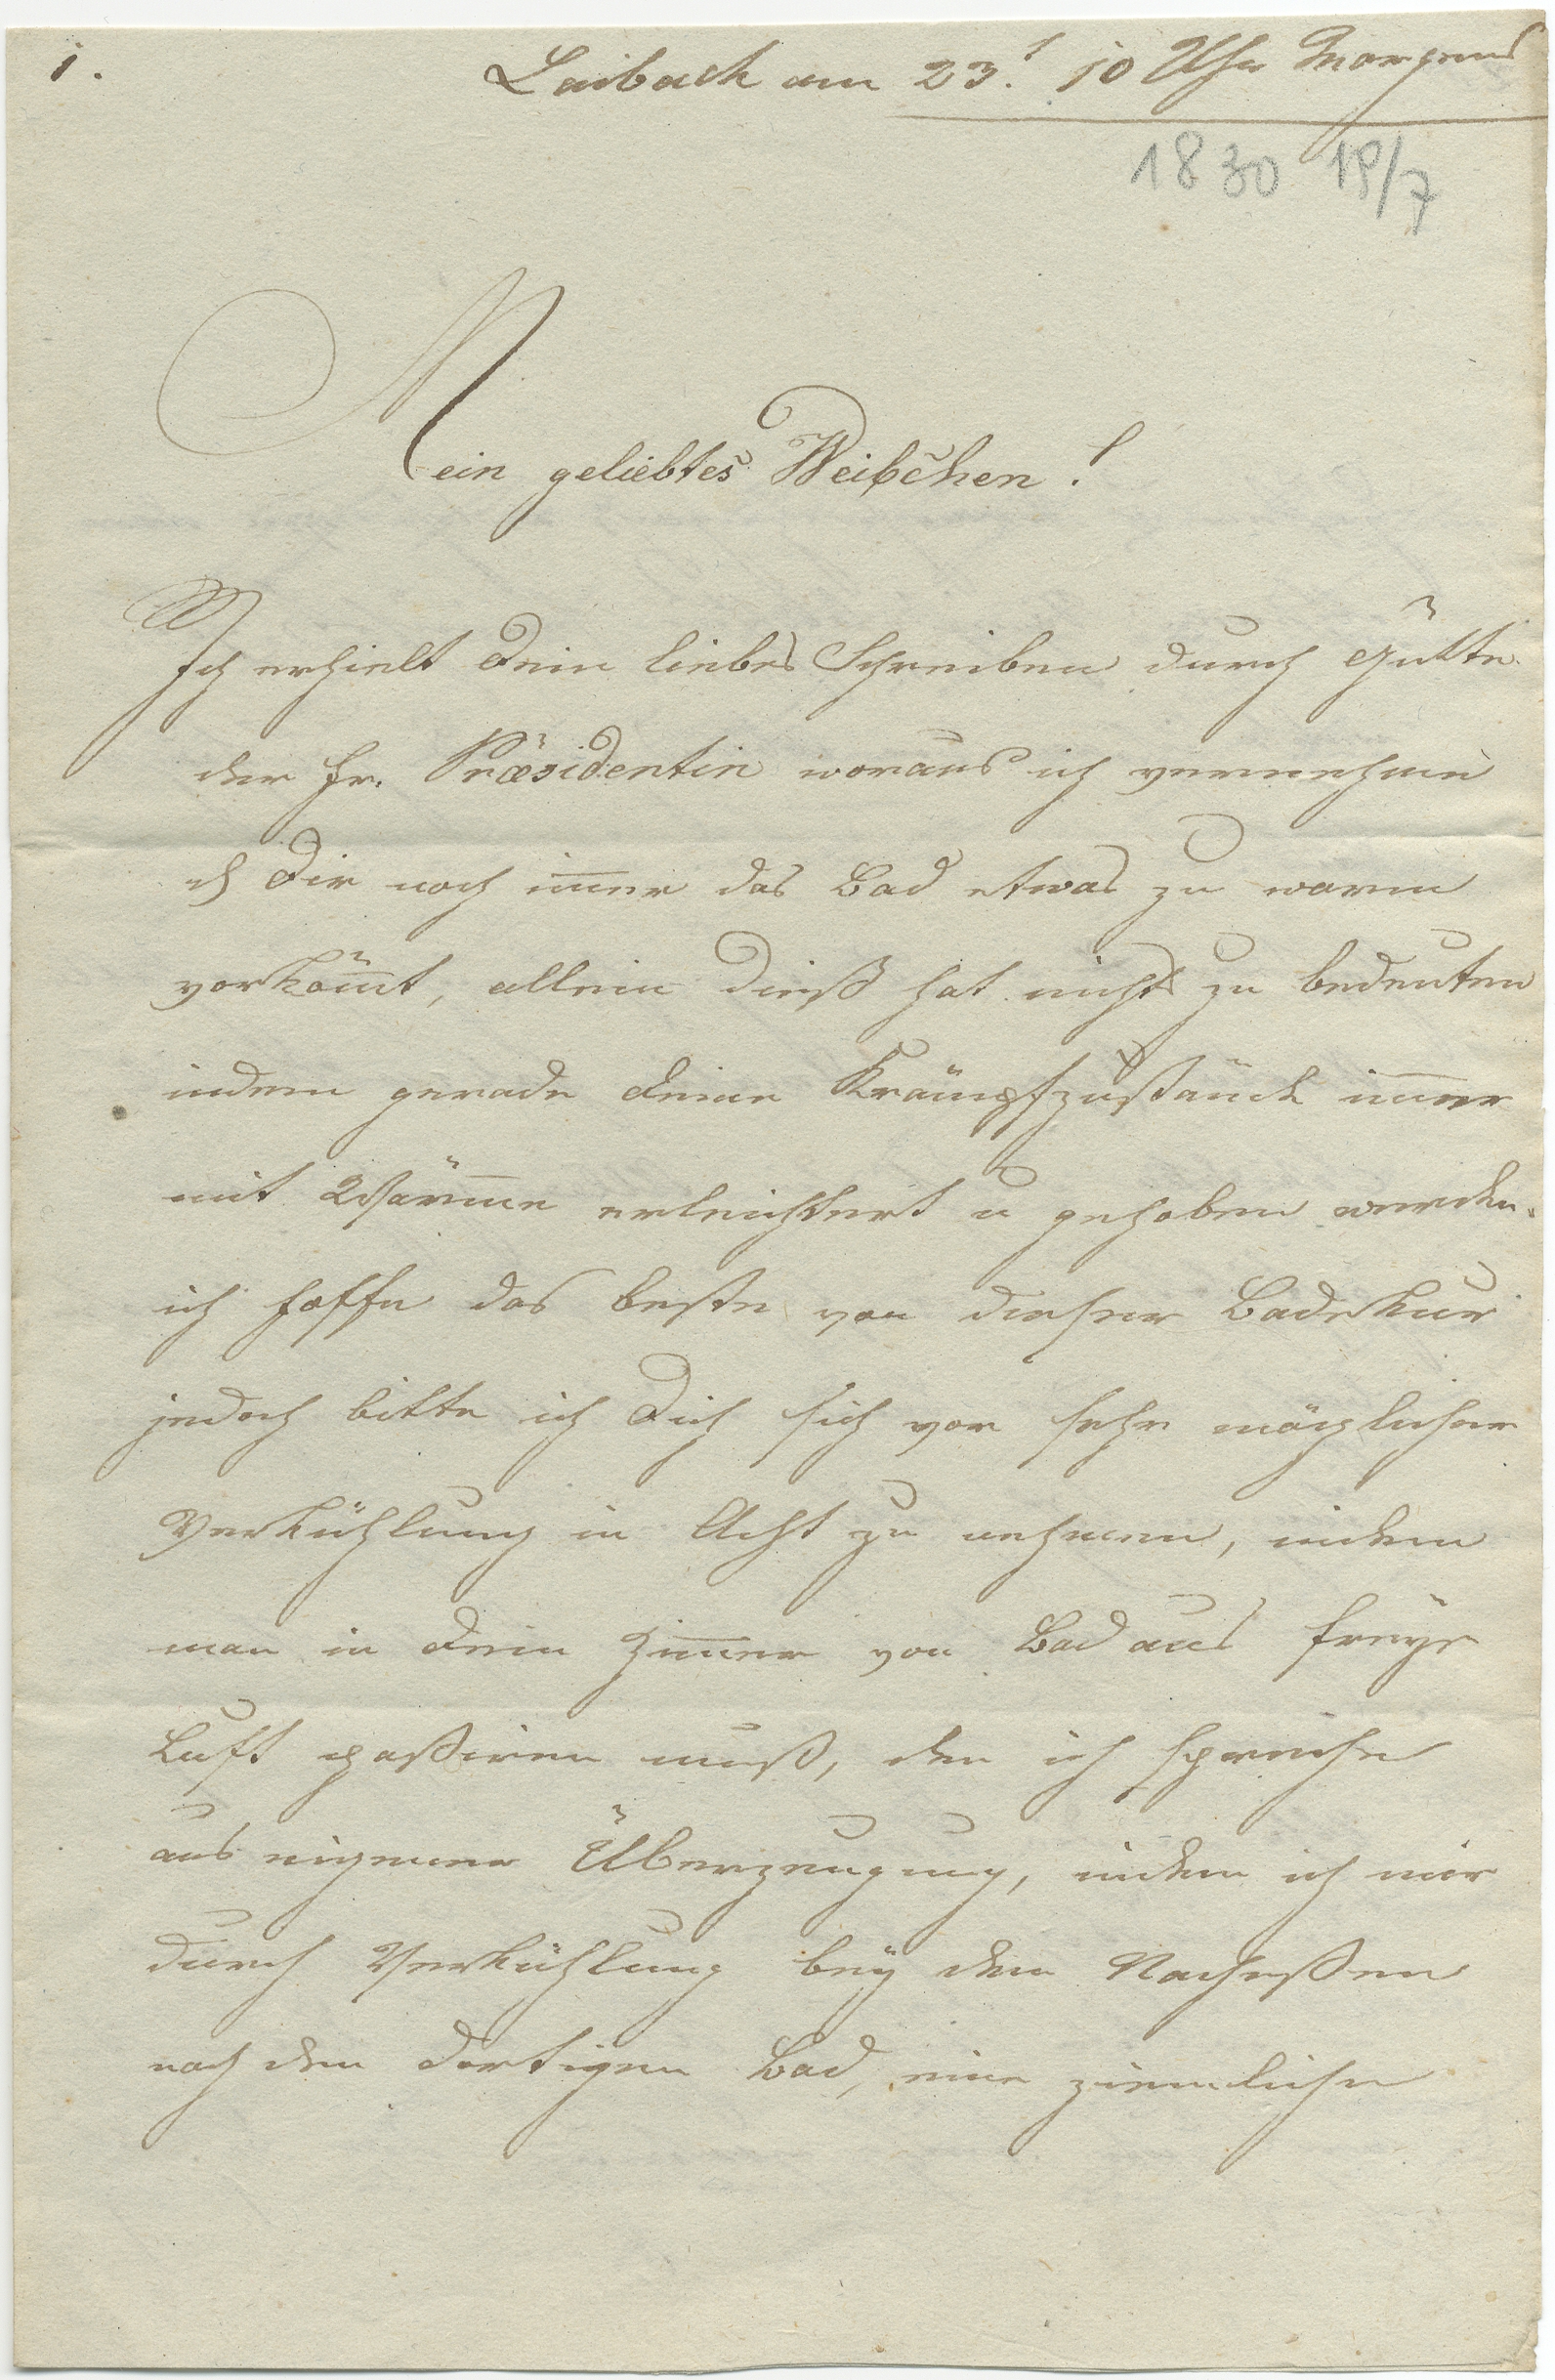 1.
Laibach am 23t 10 Uhr Morgens
1830 18/7
Mein geliebtes Weibchen!
Ich erhielt Dein liebes Schreiben durch Gütte
der Fr. Præsidentin woraus ich vernehme
Dir noch im̅er das Bad etwas zu warm
vorköm̅t, allein dieß hat nichts zu bedeuten
indem gerade Deine Krämpfzustände im̅er
mit Wärme erleichtert u gehoben werden.
ich hoffe das beste von dieser Badekur
jedoch bitte ich Dich sich vor sehr möglicher
Verkühlung in Acht zu nehmen, indem
man in Dein Zim̅er von Bad aus freye
Luft paßiren muß, den ich spreche
aus eigener Überzeugung, indem ich mir
durch Verkühlung bey dem
nach dem dortigen Bad, eine ziemliche